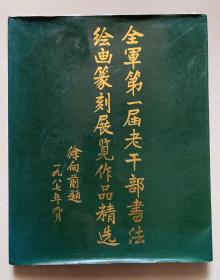 全軍第一届老干部書法
绘画篆刻展覽作品精选
徐向前題
一九八七年八月